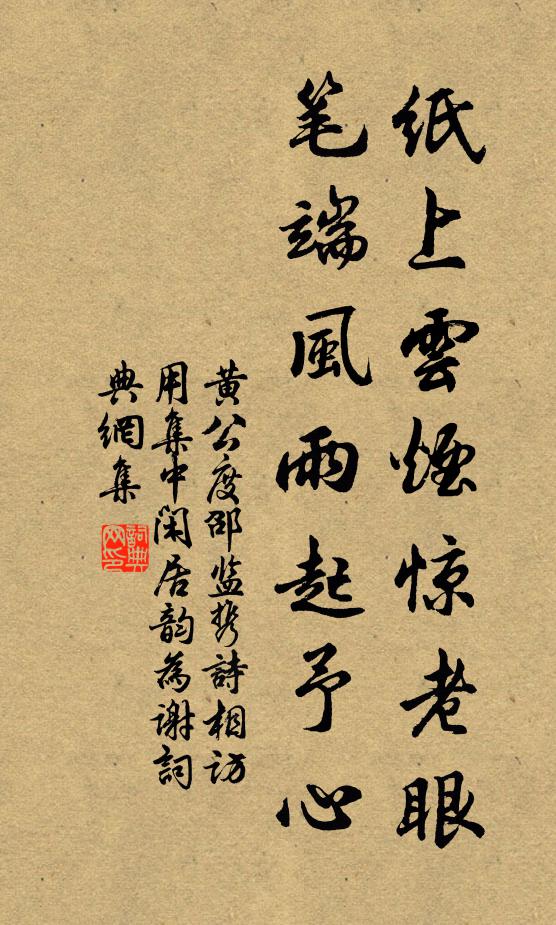 纸上雲煙惊老眼
笔端風雨起予心
黄公度邵监携詩相访
用集中闲居韵為谢詞
典網集
詞典網印